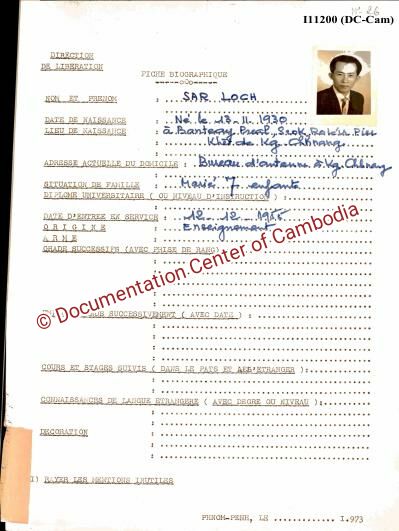 Nº 26
I11200 (DC-Cam)
DIRECTION
DE LIBERATION
FICHE BIOGRAPHIQUE
NOM ET PRENOM : SAR LOCH
DATE DE NAISSANCE : Né le 13-11-1930
LIEU DE NAISSANCE : à Banteay Preal, Srok Rolea Pier
Khet de Kg. Chhnang
ADRESSE ACTUELLE DU DOMICILE : Bureau d'antenne à Kg. Chhnang
SITUATION DE FAMILLE : Marié 7 enfants
DIPLOME UNIVERSITAIRE ( OU NIVEAU D'INSTRUCTION ) :
DATE D'ENTREE EN SERVICE : 12-12-1955
ORIGINE : Enseignement
ARME :
GRADE SUCCESSIFS (AVEC PRISE DE RANG) :
© Documentation Center of Cambodia
SUCCESSIVEMENT ( AVEC DATE ) :
COURS ET STAGES SUIVIS ( DANS LE PAYS ET A L'ETRANGER ) :
CONNAISSANCES DE LANGUE ETRANGERE ( AVEC DEGRE OU NIVEAU ) :
DECORATION :
1) RAYER LES MENTIONS INUTILES
PHNOM-PENH, LE .............. 1.973